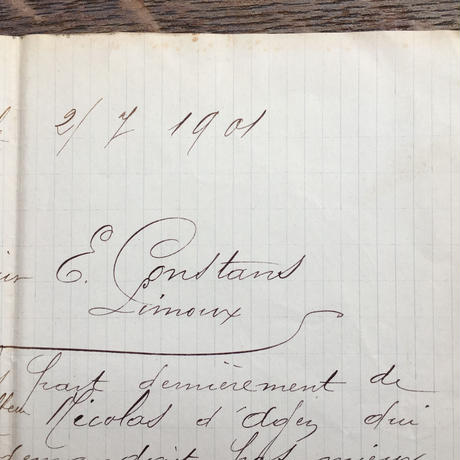 2/7 1901
E. Constans
Limoux
fait dernièrement de
Nicolas d'Agen qui
pas mieux